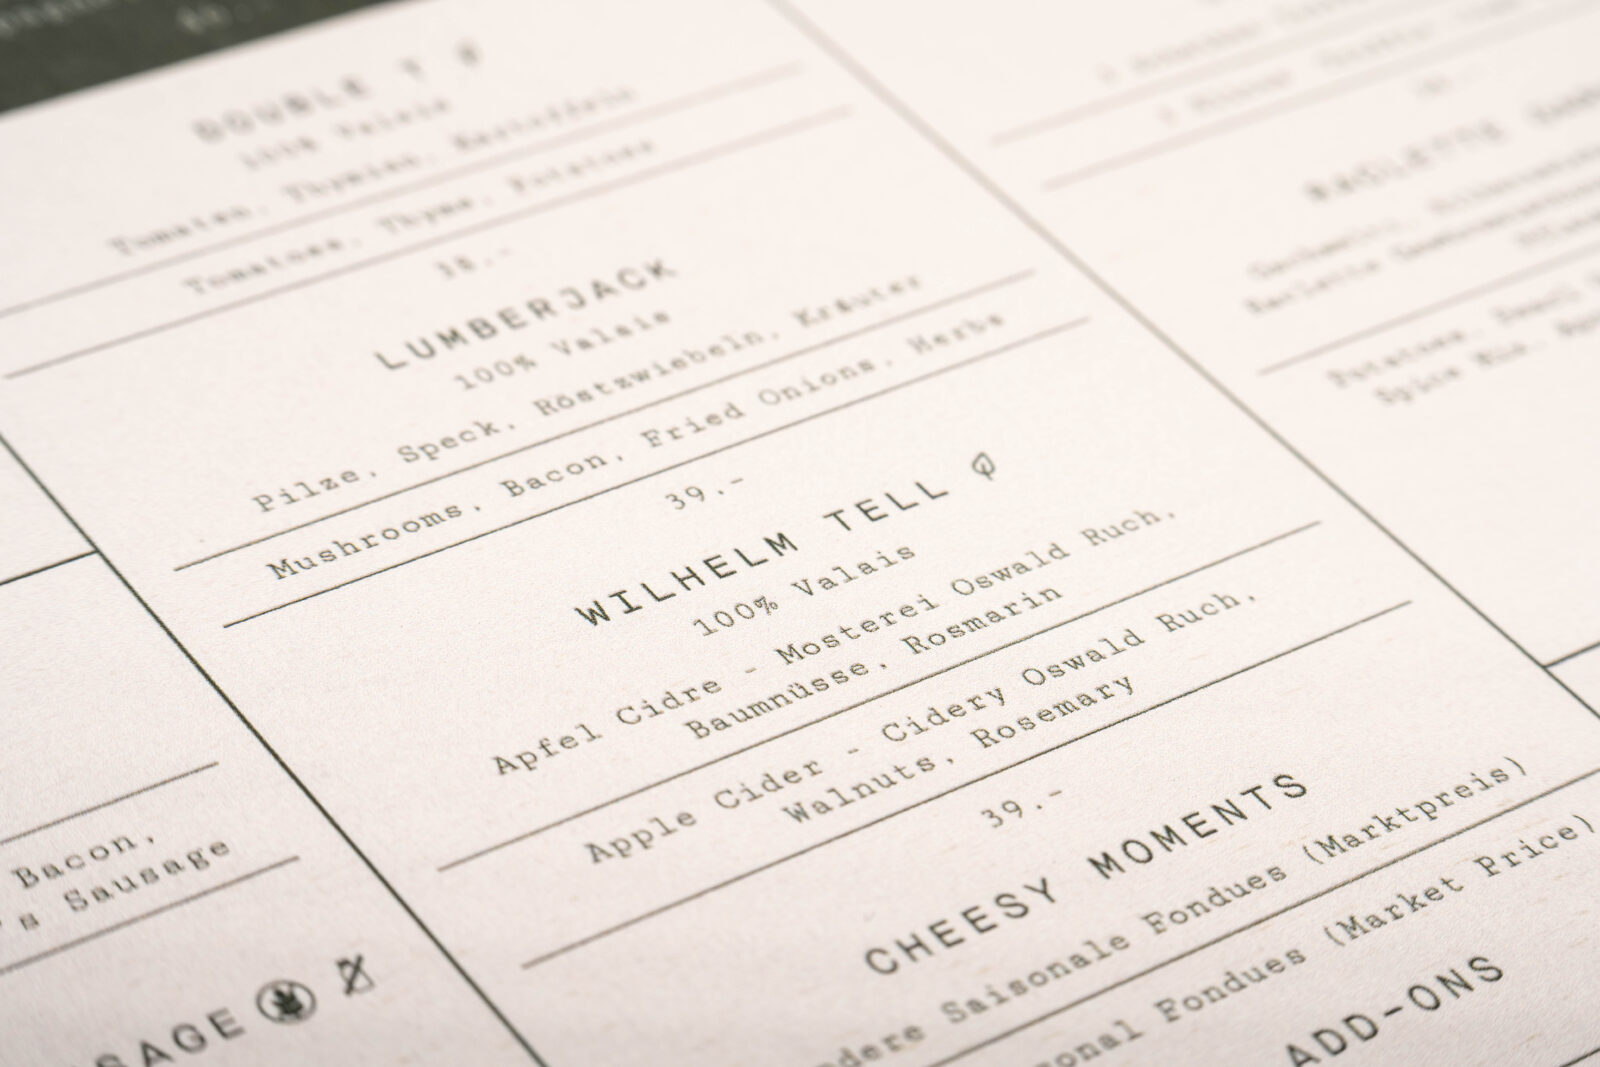 DOUBLE T
100% Valais
Tomaten, Thymian, Kartoffeln
Tomatoes, Thyme, Potatoes
38.-
LUMBERJACK
100% Valais
Pilze, Speck, Röstzwiebeln, Kräuter
Mushrooms, Bacon, Fried Onions, Herbs
39.-
WILHELM TELL
100% Valais
Apfel Cidre - Mosterei Oswald Ruch,
Baumnüsse, Rosmarin
Apple Cider - Cidery Oswald Ruch,
Walnuts, Rosemary
39.-
CHEESY MOMENTS
dere Saisonale Fondues (Marktpreis)
onal Fondues (Market Price)
ADD-ONS
Bacon,
's Sausage
SAGE
RACLETTE
Potatoes,